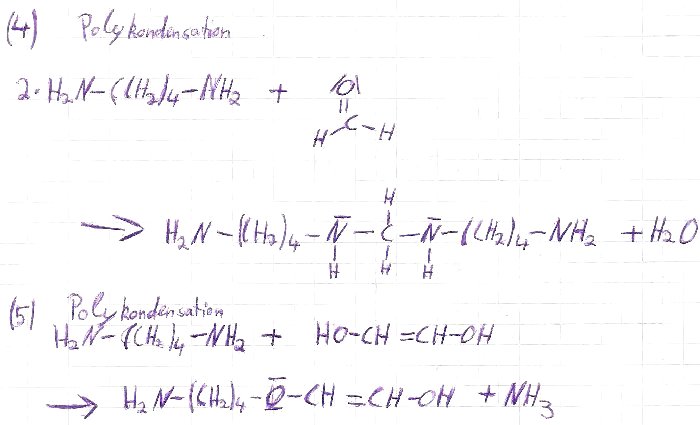 (4) Polykondensation
2 · H₂N–(CH₂)₄–NH₂ +
|O|
||
H C–H
H
|
→ H₂N–(CH₂)₄–N̅–C–N̅–(CH₂)₄–NH₂ + H₂O
| | |
H H H
(5) Polykondensation
H₂N–(CH₂)₄–NH₂ + HO–CH=CH–OH
→ H₂N–(CH₂)₄–O̅–CH=CH–OH + NH₃